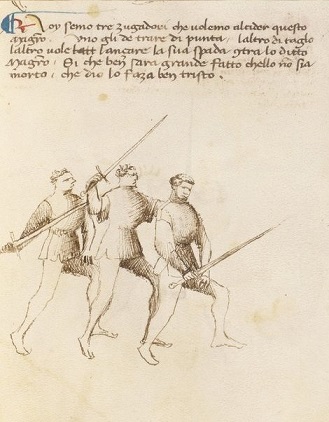 Noy semo tre zugadori che volemo alcider questo
magro. Uno gli de trare di punta, laltro di taglo
laltro vole lançare la sua spada contra lo ditto
Magro. Si che ben sara grande fatto chello nō sia
morto, che dio lo faza ben tristo.